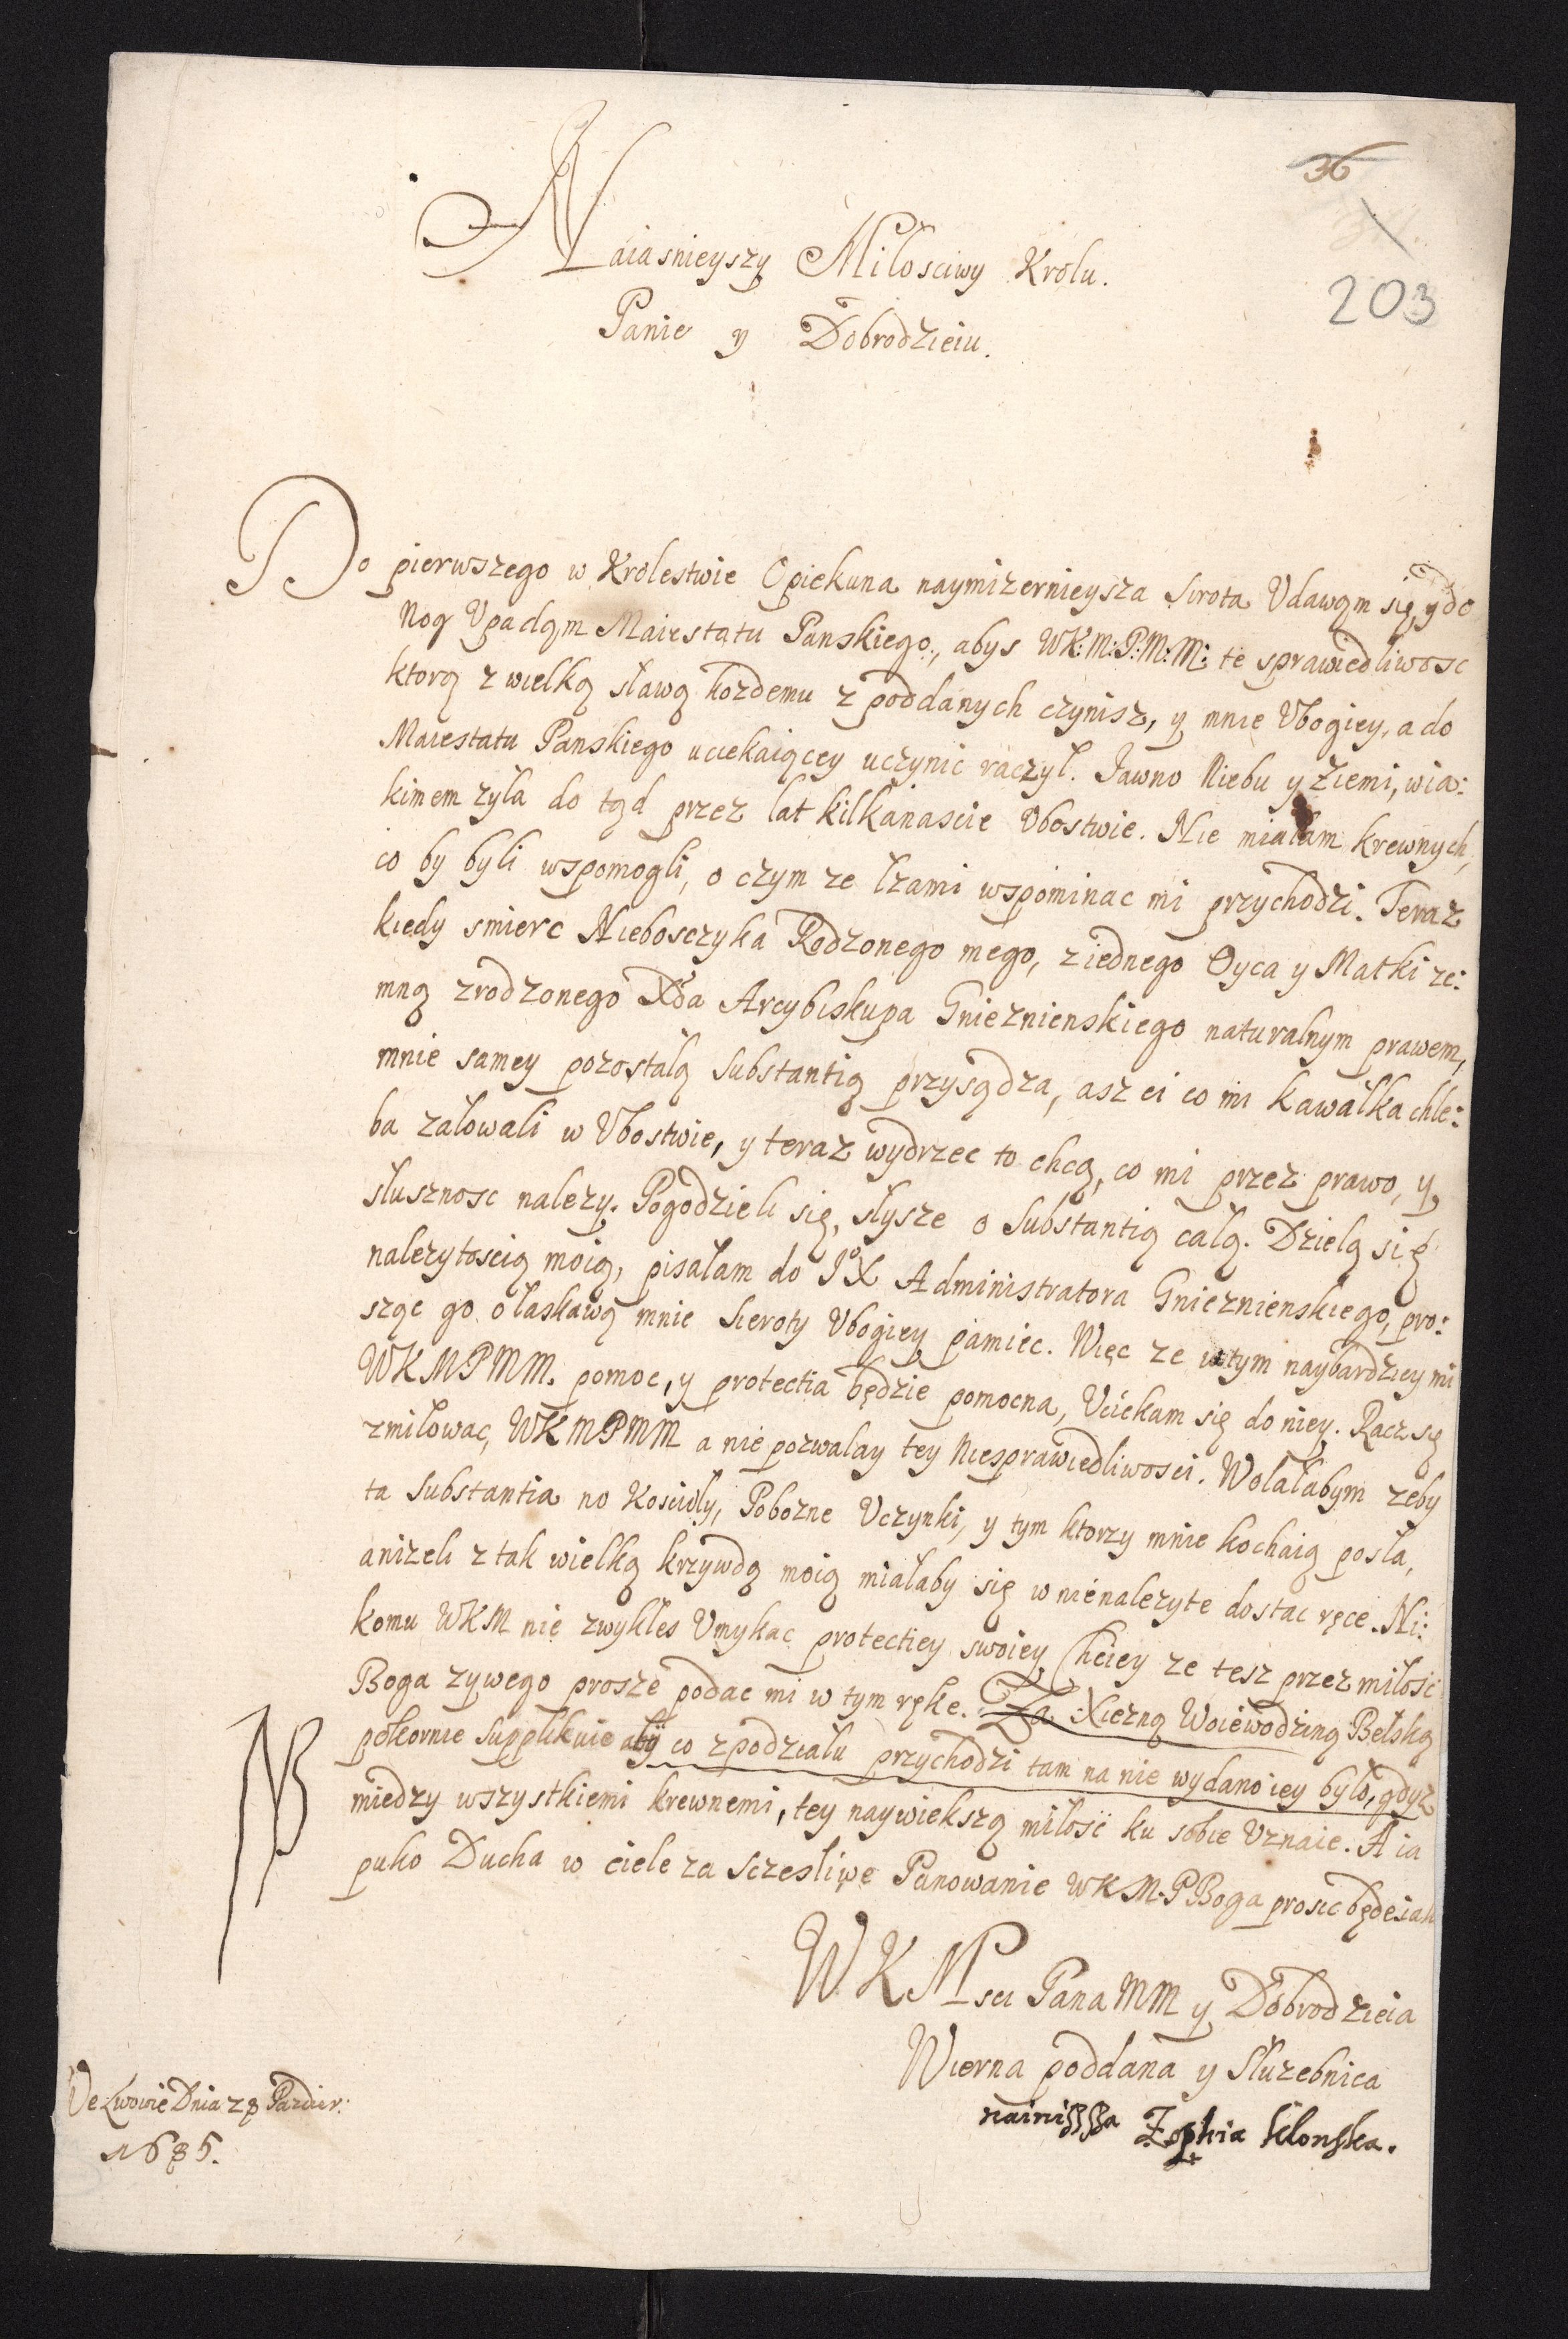 36
203
Naiasnieyszy Miłosciwy Krolu.
Panie y Dobrodzieiu.
Do pierwszego w Krolestwie Opiekuna naymizernieysza Sirota Vdawąm się, y do
Nog Vpadąm Maiestatu Panskiego, abys WK:M:P:M:M: te sprawiedliwosc
ktorą z wielką sławą kozdemu z poddanych czynisz, y mnie Vbogiey, a do
Maiestatu Panskiego uciekaiącey uczynic raczył. Jawno Niebu y Ziemi, wia:
kimem zyła do tąd przez lat kilkanascie Vbostwie. Nie miałam krewnych,
co by byli wspomogli, o czym ze łzami wspominac mi przychodzi. Teraz
kiedy smierc Nieboszczyka Rodzonego mego, z iednego Oyca y Matki ze:
mną zrodzonego Xdza Arcybiskupa Gnieznienskiego naturalnym prawem,
mnie samey pozostałą Substantią przysądza, asz ci co mi kawałka chle:
ba załowali w Vbostwie, y teraz wydrzec to chcą, co mi przez prawo, y
słusznosc nalezy. Pogodzieli się, słysze o Substantią całą. Dzielą się
nalezytoscią moią, pisałam do JoX Administratora Gnieznienskiego, pro:
sząc go o łaskawą mnie Sieroty Vbogiey pamiec. Więc ze w tym naybardziey mi
WKMPMM. pomoc, y protectia będzie pomocna, Vciekam się do niey. Racz się
zmiłowac, WKMPMM a nie pozwalay tey Niesprawiedliwosci. Wolałabym zeby
ta Substantia no Koscioły, Pobozne Vczynki, y tym ktorzy mnie kochaią posła,
anizeli z tak wielką krzywdą moią miałaby się w nienalezyte dostac ręce. Ni:
komu WKM nie zwykłes Vmykac protectiey swoiey Chciey ze tesz przez miłosc
Boga zywego prosze podac mi w tym ręke. Za Xiezną Woiewodziną Bełską
pokornie supplikuie aby co z podziału przychodzi tam na nie wydano iey było, gdyz
miedzy wszystkiemi krewnemi, tey naywiekszą miłosc ku sobie Vznaie. A ia
puko Ducha w ciele za sczesliwe Panowanie WKM.P Boga prosic będe iak
NB
WKMsci Pana MM y Dobrodzieia
Wierna poddana y Słuzebnica
nainiszsza Zophia Klonska.
We Lwowie Dnia 28 Pazdier:
1685.